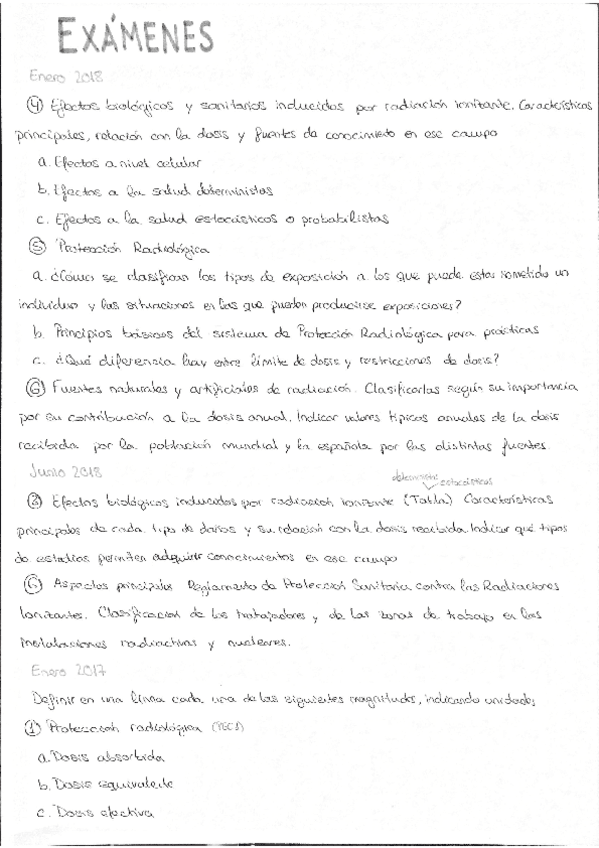 EXÁMENES
Enero 2018
④ Efectos biológicos y sanitarios inducidos por radiación ionizante. Características
principales, relación con la dosis y fuentes de conocimiento en ese campo
a. Efectos a nivel celular
b. Efectos a la salud deterministas
c. Efectos a la salud estocásticos o probabilistas
⑤ Protección Radiológica
a. ¿Cómo se clasifican los tipos de exposición a los que puede estar sometido un
individuo y las situaciones en las que pueden producirse exposiciones?
b. Principios básicos del sistema de Protección Radiológica para prácticas
c. ¿Qué diferencia hay entre límite de dosis y restricciones de dosis?
⑥ Fuentes naturales y artificiales de radiación. Clasificarlas según su importancia
por su contribución a la dosis anual. Indicar valores típicos anuales de la dosis
recibida por la población mundial y la española por las distintas fuentes.
Junio 2018
deterministas
estocásticos
Efectos biológicos inducidos por radiación ionizante (Tabla) Características
principales de cada tipo de daños y su relación con la dosis recibida. Indicar qué tipos
de estudios permiten adquirir conocimientos en ese campo
Aspectos principales Reglamento de Protección Sanitaria contra las Radiaciones
Ionizantes. Clasificación de los trabajadores y de las zonas de trabajo en las
instalaciones radiactivas y nucleares.
Enero 2017
Definir en una línea cada una de las siguientes magnitudes, indicando unidades
① Protección radiológica
a. Dosis absorbida
b. Dosis equivalente
c. Dosis efectiva